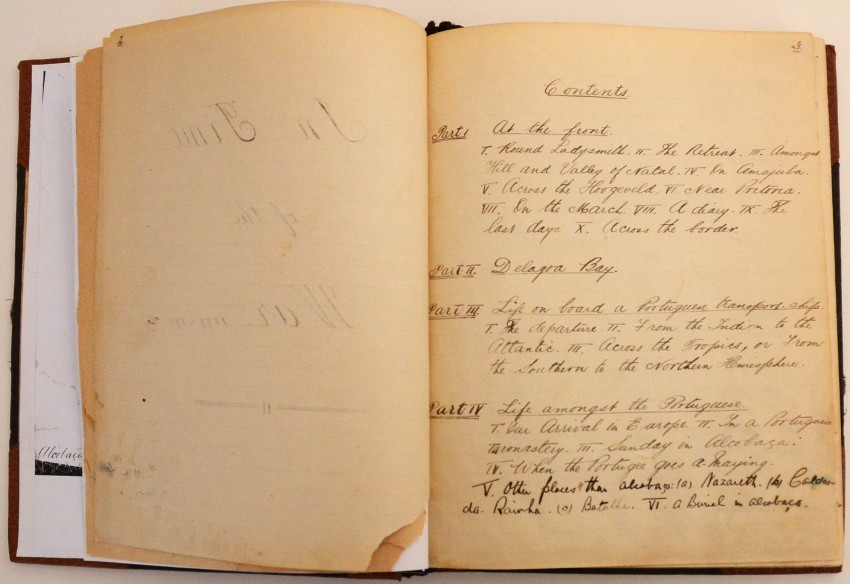 2
In Time
of the
War
Alcobaça
3.
Contents.
Part I At the front.
I. Round Ladysmith. II. The Retreat. III. Amongst
Hill and Valley of Natal. IV On Amajuba.
V. Across the Hoogeveld. VI Near Pretoria.
VII. On the March. VIII. A diary. IX. The
last days X. Across the border.
Part II. Delagoa Bay.
Part III. Life on board a Portuguese transport-ship.
I. The departure II. From the Indian to the
Atlantic. III. Across the Tropics, or From
the Southern to the Northern Hemisphere.
Part IV Life amongst the Portuguese.
I. Our Arrival in Europe. II. In a Portuguese
monastery. III. Sunday in Alcobaça.
IV. When the Portugee goes a-Maying.
V. Other places than alcobaça: (a) Nazareth. (b) Caldas-
da-Rainha. (c) Batalha. VI. a Burial in alcobaça.